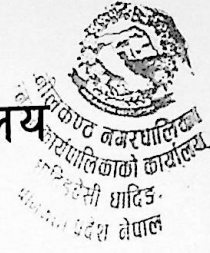 लय
नीलकण्ठ नगरपालिका
नगर कार्यपालिकाको कार्यालय
धादिङ
प्रदेश नेपाल